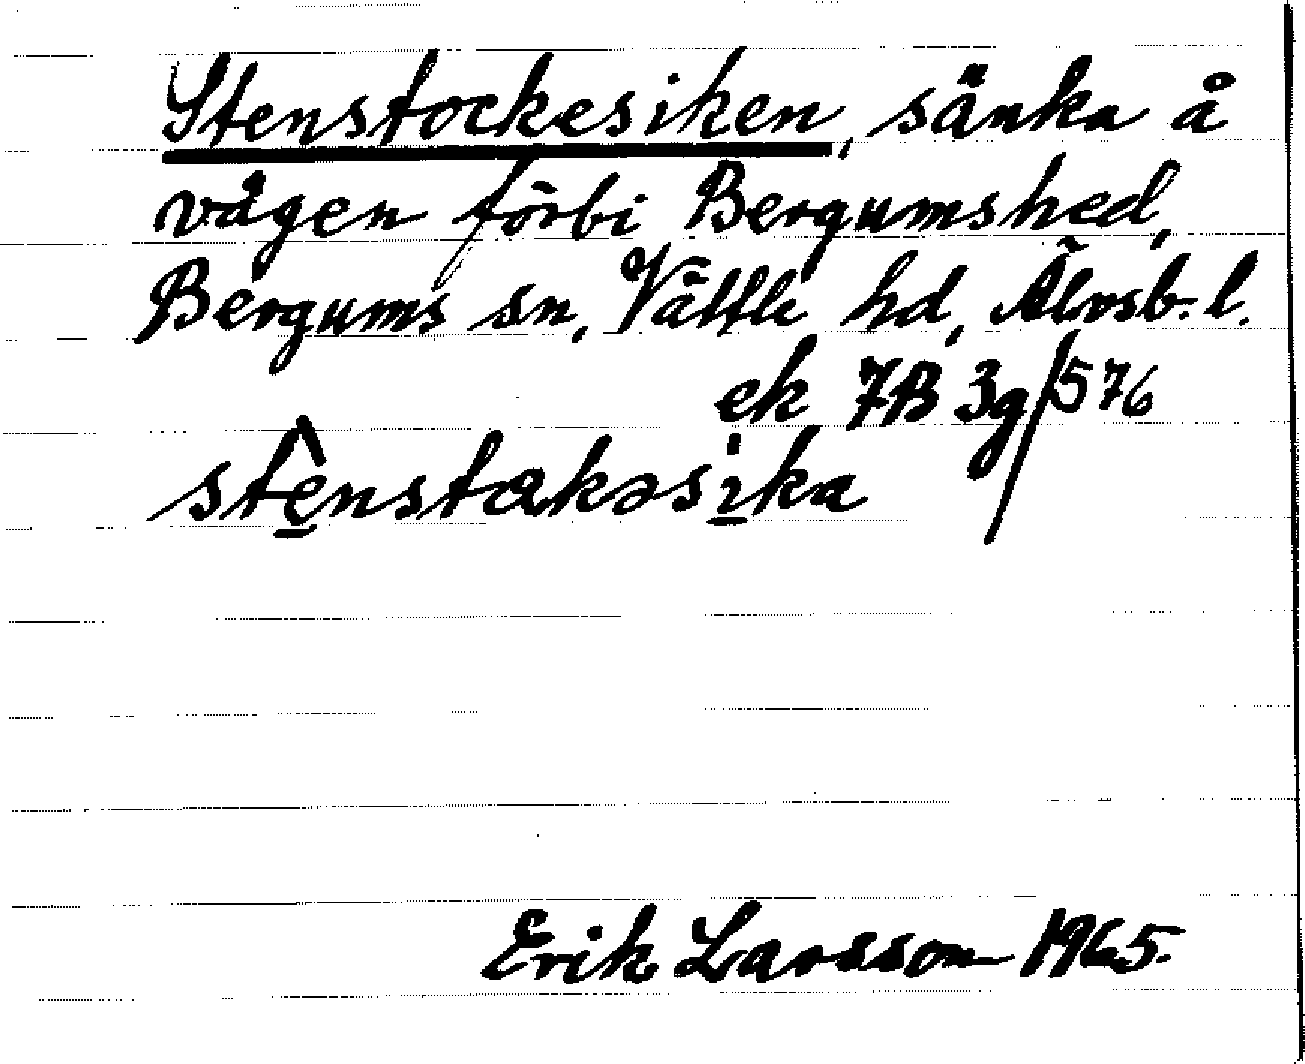 Stenstockesiken, sänka å
vägen förbi Bergumshed,
Bergums sn, Vättle hd, Älvsb. l.
ek 7B 3g/576
stênstɑkəsi̱ka
Erik Larsson 1965.